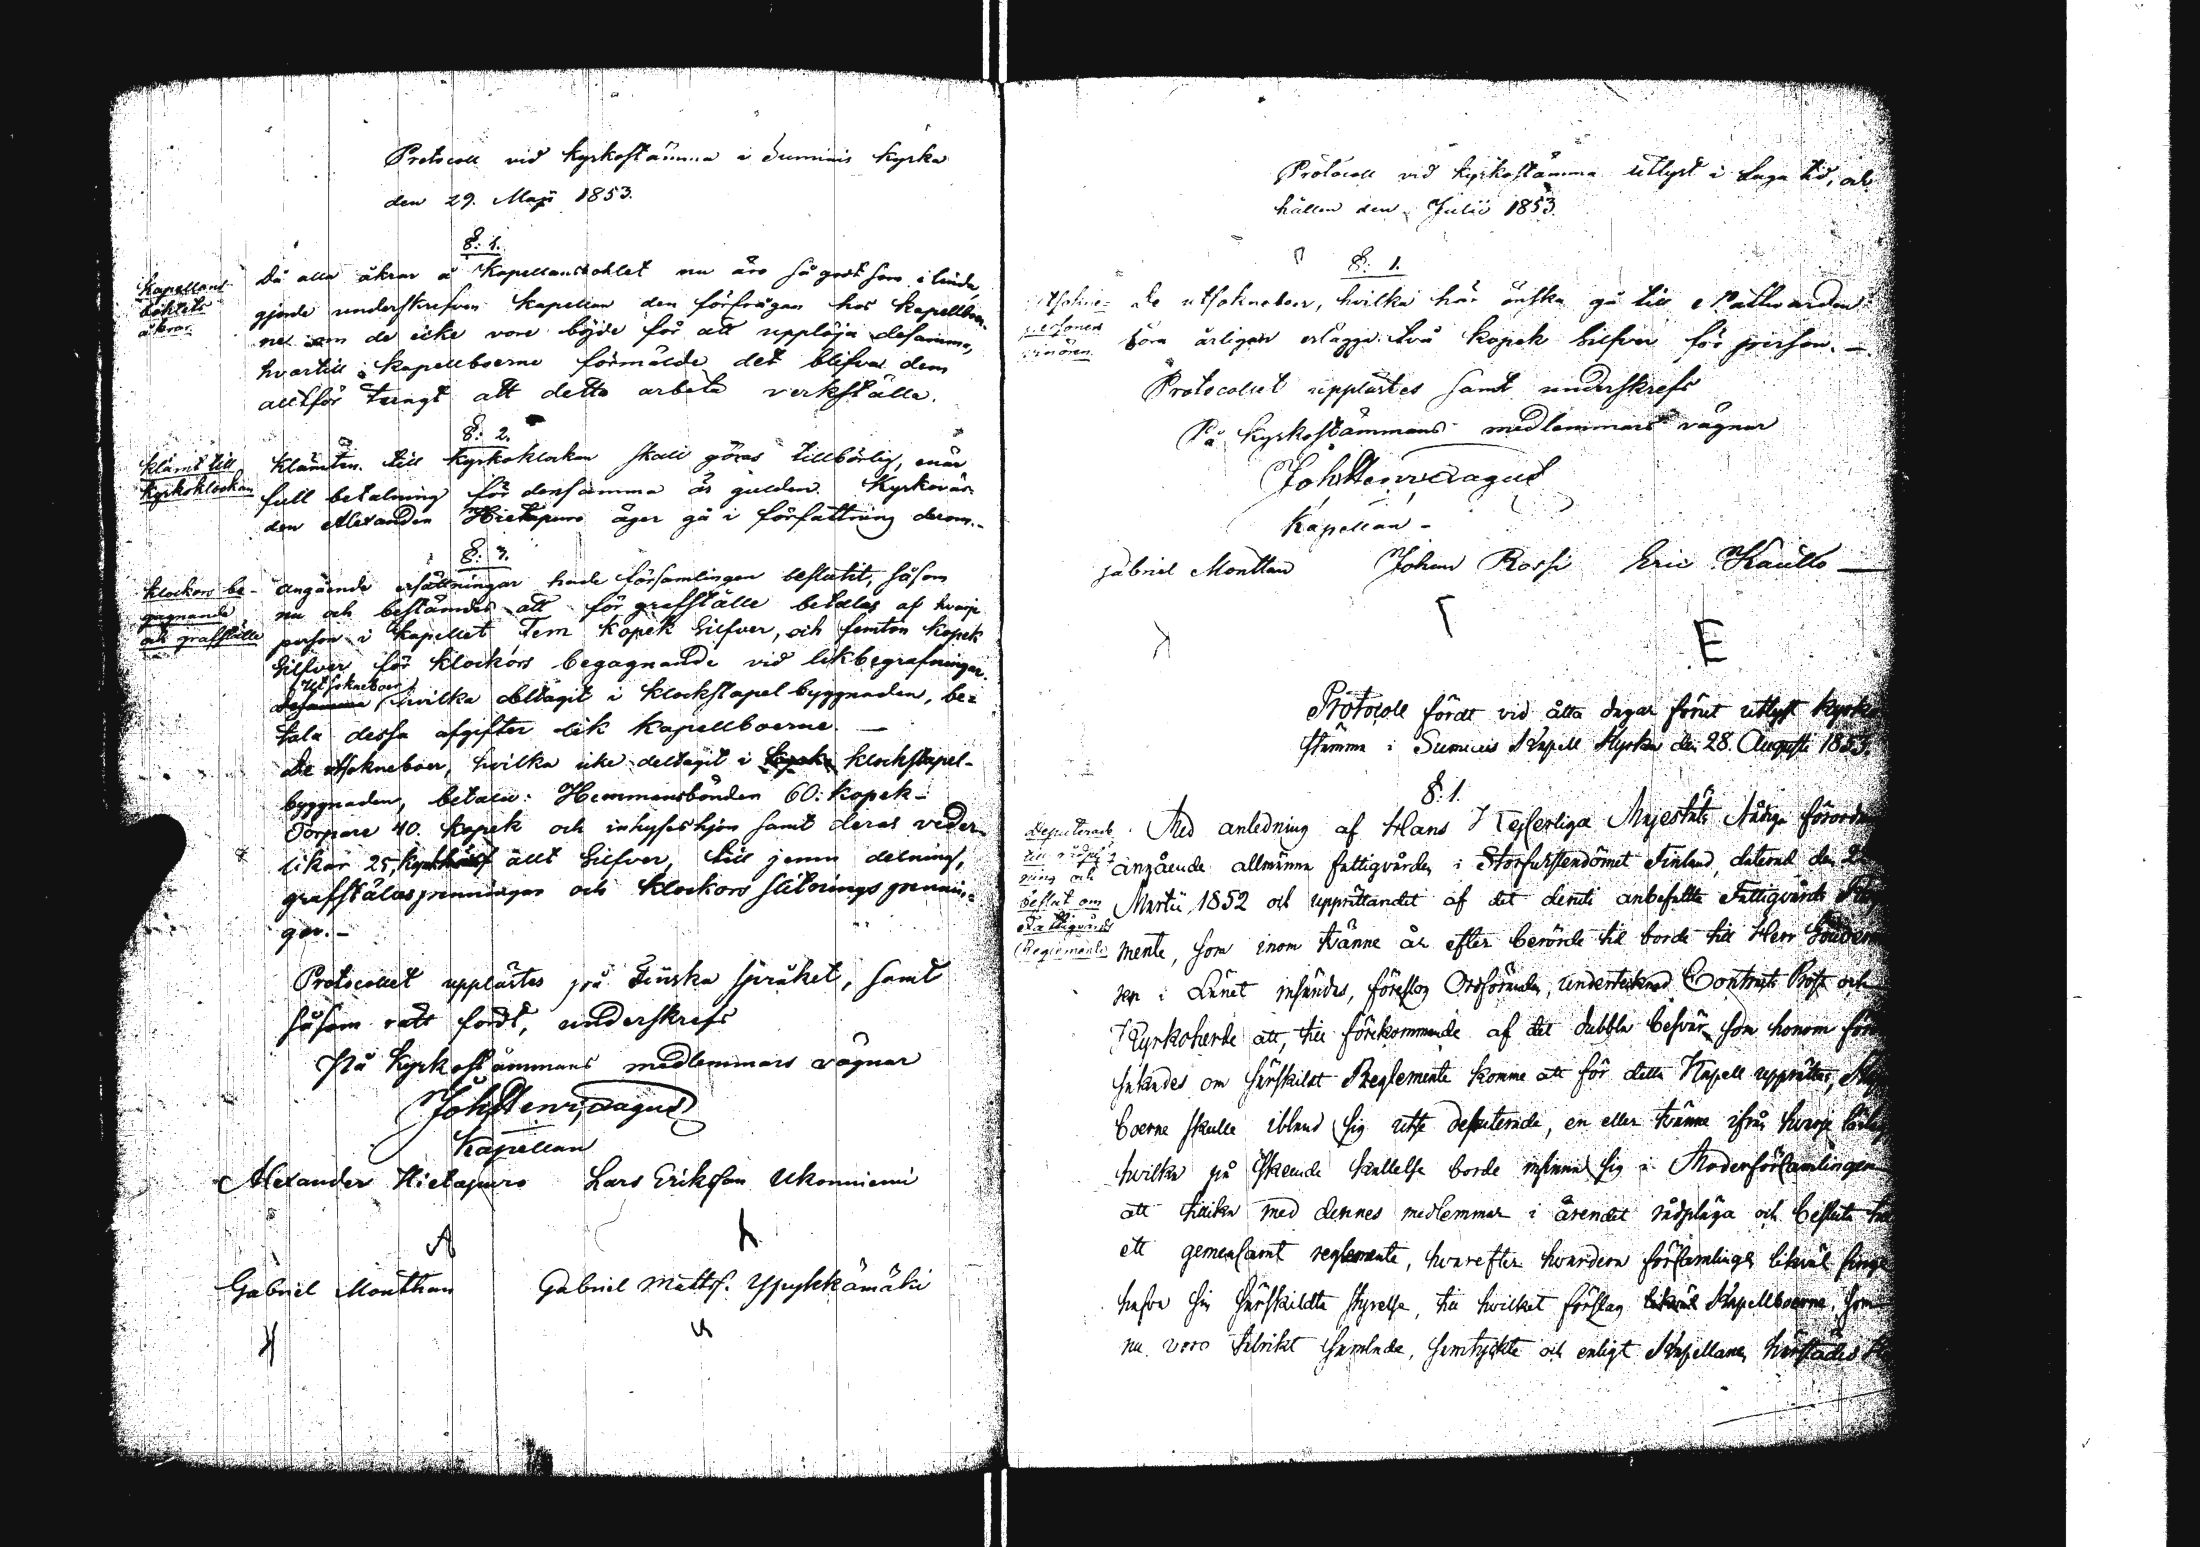 Protocoll vid Kyrkostämma i Suminis Kyrka
den 29. Maji 1853.
§: 1.
Kapellans-
bohlets
åkrar.
Då alla åkrar å Kapellansbohlet nu äro så godt som i linda,
gjorde underskrefven kapellan den förfrågan hos Kapellboer-
ne om de icke vore böjde för att upplöja desamma,
hvartill Kapellboerne förmälde det blifva dem
alltför tungt att detta arbete verkställa.
§: 2.
Klämt till
Kyrkoklockan
Klämten till Kyrkoklockan skall göras tillbörlig, enär
full betalning för densamma är gulden. Kyrkovär-
den Alexander Hietapuro äger gå i författning derom.-
§: 3.
Klockors be-
gagnande
och grafställe
Angående ersättningar hade Församlingen beslutit, såsom
nu och bestämdes att för grafställe betalas af hvarje
person i Kapellet Fem Kopek Silfver, och femton kopek
Silfver för Klockors begagnande vid likbegrafningar.
(Utsokneboer)
Desamma hvilka deltagit i klockstapel byggnaden, be-
tala dessa afgifter lik Kapellboerne. —
De utsokneboer, hvilka icke deltagit i klockstapel-
byggnaden, betala: Hemmansbönder 60. Kopek-
Torpare 40. Kopek och inhyseshjon samt deras veder-
likar 25, allt Silfver, till jemn delning,
grafställespenningar och Klockors slitnings pennin-
gar. -
Protocollet upplästes på Finska språket, samt
såsom rätt fördt, underskrefs
På Kyrkostämmans medlemmars vägnar
Joh Henr Wagud
Kapellan
Alexander Hietapuro Lars Eriksson Ukonniemi
Gabriel Monthan Gabriel Matts. Ypykkämäki
Protocoll vid Kyrkostämma utlyst i Laga tid, och
hållen den Julii 1853.
§: 1.
De utsokneboer, hvilka här önska gå till Nattvarden
böra årligen erlägga två kopek Silfver för person. —
Protocollet upplästes samt underskrefs
På Kyrkostämmans medlemmars vägnar
Joh Henr Wagud
Kapellan -
Gabriel Monthan Johan Rossi Eric Kautto —
E
Protocoll fördt vid åtta dagar förut utlyst Kyrko
stämma i Suminis Kapell Kyrka den 28. Augusti 1853.
§: 1.
Deputerade
beslut om
Fattigvårds
Reglemente
Med anledning af Hans Kejserliga Majestäts Nådiga förordn
angående allmänna fattigvården i Storfurstendömet Finland, daterad den
Martii 1852 och upprättandet af det deruti anbefallta Fattigvårds
mente, som inom tvänne år efter berörde tid borde till Herr
ren i Länet insändas, föreslog Ordföranden, undertecknad Contracts Prost och
Kyrkoherde att, till förekommande af det dubbla besvär som honom
om särskildt Reglemente komme att för detta Kapell upprättas,
boerne skulle ibland sig utse deputerade, en eller tvänne ifrån hvarje
hvilka på skeende kallelse borde infinna sig i Moderförsamlingen
att tillika med dennes medlemmar i ärendet rådpläga och besluta
ett gemensamt reglemente, hvarefter hvardera församlingen likväl finge
hafva sin särskildta styrelse, till hvilket förslag Kapellboerne, som
nu voro talrikt samlade, samtyckte och enligt Kapellanens härstädes